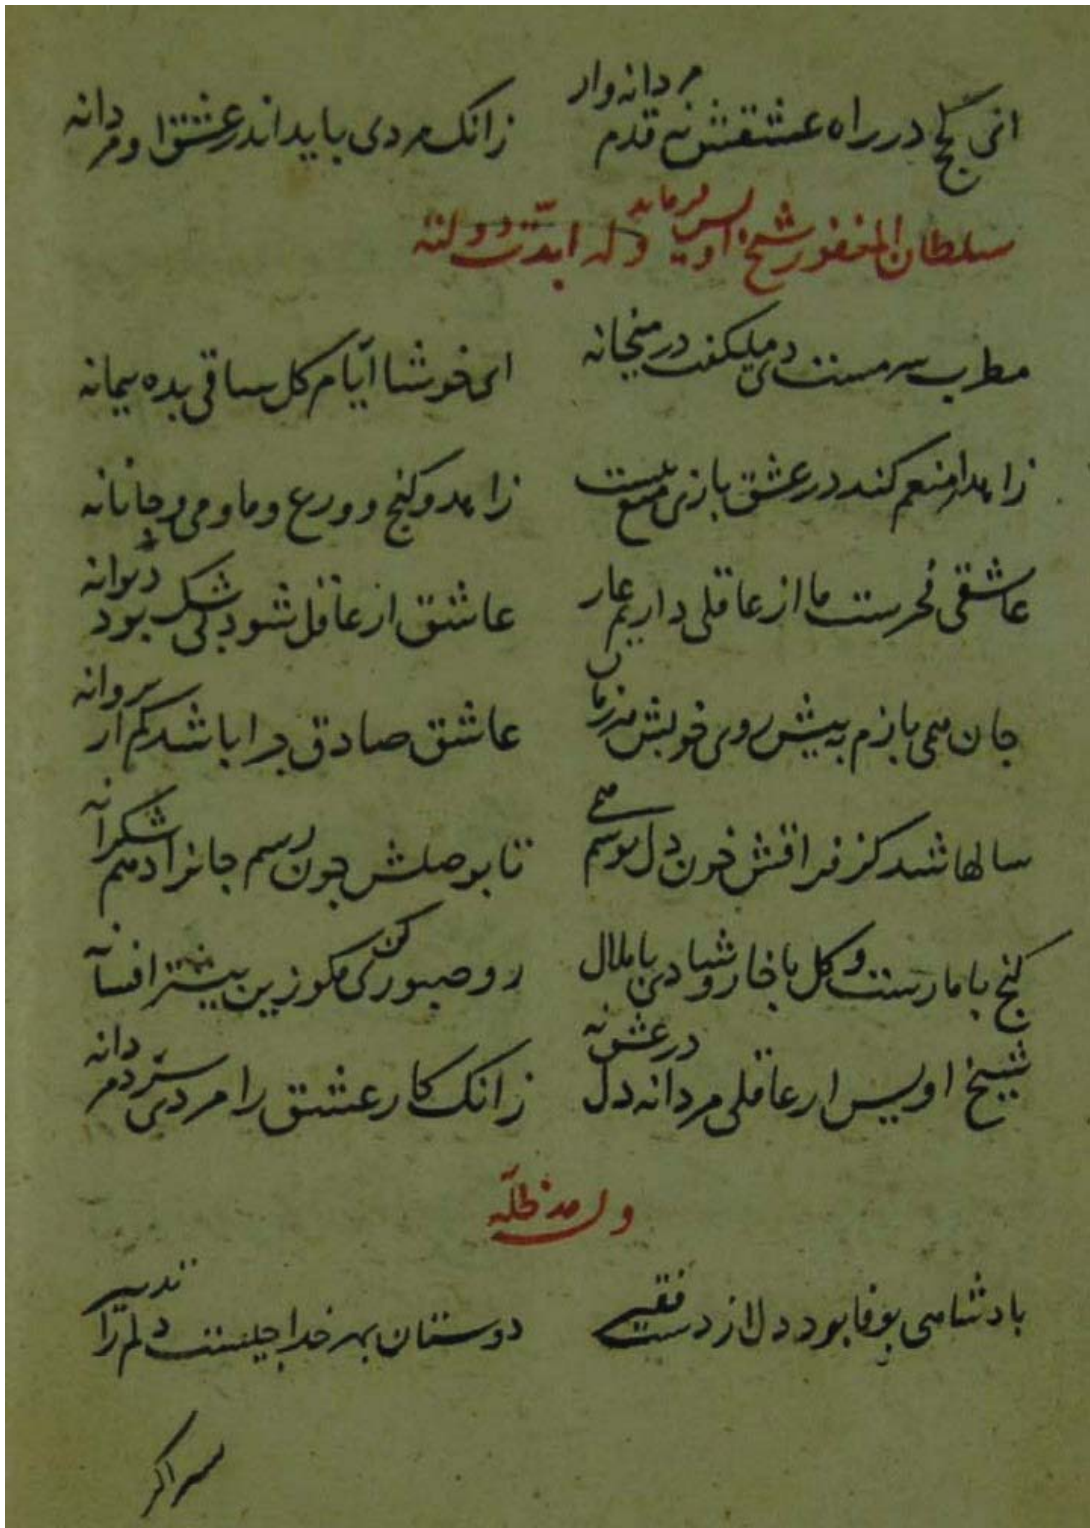 اتی گج در راه عشقش نه قدم مردانه وار زانک مردی باید اندر عشق او مردانه
سلطان المغفور شیخ اویس فرماید وله ابدت دولته
مطرب سرمست دی میگفت در میخانه ای خوشا ایام کل ساقی بده پیمانه
زاهد ار منعم کند در عشق بازی منع نیست زاهد و کنج و ورع و ما و می و جانانه
عاشقی فخرست ما از عاقلی داریم عار عاشق ار عاقل شود بی شک بود دیوانه
جان همی بازم به پیش روی خوبش هر زمان عاشق صادق چرا باشد کم از پروانه
سالها شد کز فراقش خون دل نوشم همی تا بوصلش چون رسم جانرا دهم شکرانه
کنج با مارست و کل با خار و شادی با ملال رو صبوری کن مکو زین بیشتر افسانه
شیخ اویس ار عاقلی مردانه دل در عشق نه زانک کار عشق را مردی سزد مردانه
وله مد ظله
بادشاهی بوفا بود دل از دست فقیر دوستان بهر خدا چیست دلم را تدبیر
سراکر